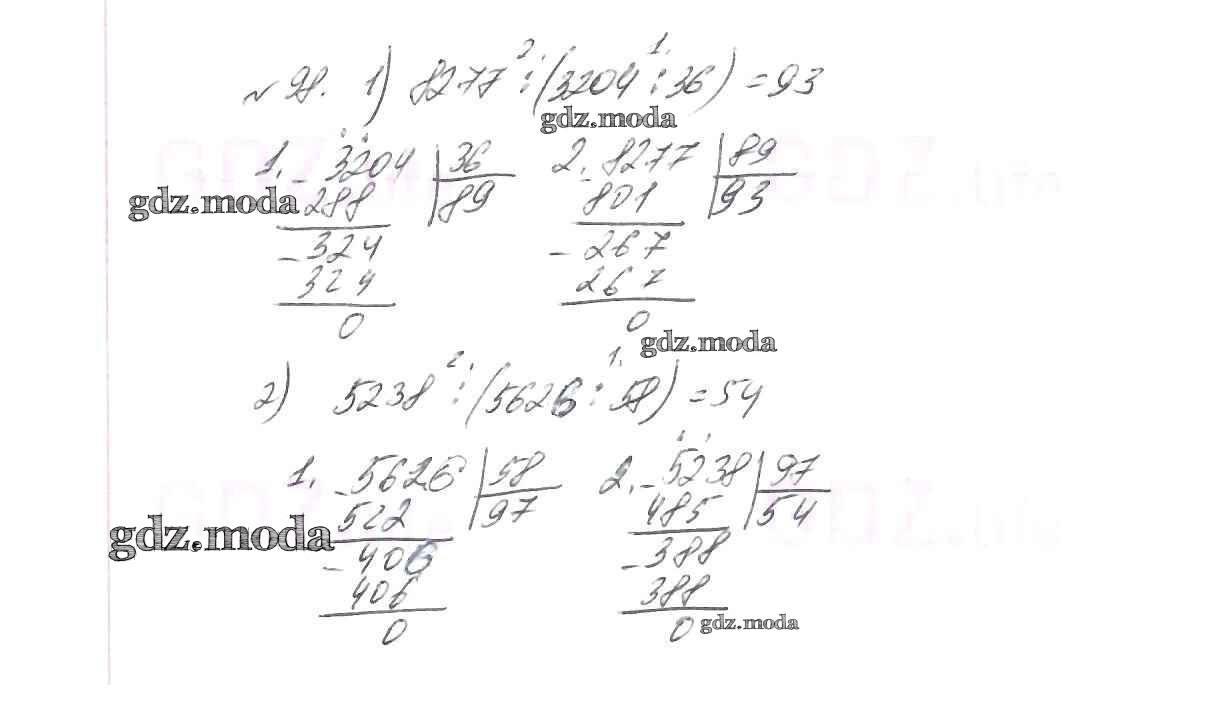 № 98. 1) 8277 : (3204 : 36) = 93
2. 1.
gdz.moda
1. - 3204 | 36 2. - 8277 | 89
gdz.moda 288 | 89 801 | 93
- 324 - 267
324 267
0 0
gdz.moda
2) 5238 : (5626 : 58) = 54
2. 1.
1. - 5626 | 58 2. - 5238 | 97
522 | 97 485 | 54
gdz.moda - 406 - 388
406 388
0 0 gdz.moda